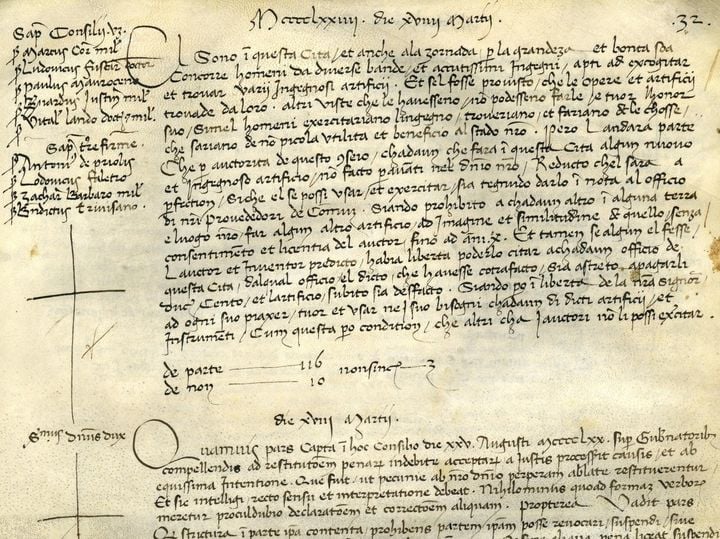 Mcccclxxiiii. die xviiii Martij.
32.
Sap. Consilij. vz.
ꝑ Marcus Cor. mil.
ꝑ Ludovicus fuscar. doctor
ꝑ paulus Mauroceno
ꝑ Bnardus Justin. mil.
ꝑ Vital lando doct. mil.
Sap. t're firme.
ꝑ Antoni' de priolis
ꝑ Lodovicus faletro
ꝑ zachar. Barbaro mil.
ꝑ Bndictus trivisano.
El Sono ī questa Cita / et anche ala zornada / ꝑ la grandeza et bonta soa
Concorre homeni da diverse bande / et acutissimi Ingegni / apti ad excogitar
et trovar varij Ingegnosi artificij. Et sel fosse provisto / che le opere et artificij
trovade da loro / altri viste che le havesseno / nō podesseno farle / e tuor l honor
suo / simel homeni exercitariano lingegno / troveriano / et fariano dele chosse /
che sariano de nō picola utilita et beneficio al stado nrō. Pero landara parte
Che ꝑ auctorita de questo 9seio / chadaun che fara ī questa Cita algun nuovo
et Ingegnoso artificio / nō facto ꝑ avāti nel dnīo nrō / Reducto chel sara a
ꝑfection / Siche el se possi usar / et exercitar / sia tegnudo darlo ī nota al officio
di nrī provededori de Comun. Siando prohibito a chadaun altro ī alguna terra
e luogo nrō / far algun altro artificio / ad Imagine et similitudine de quello / senza
consentimēto et licentia del auctor / fino ad anī x. Et tamen se algun el fesse /
Lauctor et Inventor predicto / habia liberta poderlo citar a chadaun officio de
questa Cita / dal qual officio el dicto / che havesse cōtrafacto / sia astreto / a pagarli
duc. Cento / et lartificio / subito sia desfacto. Siando ꝑo ī liberta de la nrā Signor.
ad ogni suo piaxer / tuor et usar nei suo bisogni chadaun di dicti artificij / et
Instrumēti / Cum questa ꝑo condition / che altri cha i auctori nō li possi exercitar.
de parte — 116
de non — 10
non sinc. — 3
die xviii Martij.
Smus dnūs dux
Quamvis pars Capta ī hoc Consilio die xxv. Augusti Mcccclxx. sup Gubnatorib
compellendis ad restitutōem penarū indebite acceptarū a Justis processit causis / et ab
equissima Intentione. Que fuit / ut pecunie ab nrō dnīo perperam ablate restituerentur
Et sic intelligi recto sensu et interpretatione debeat. Nihilominus quoad formaz verborū
meretur proculdubio declaratōem et correctōem aliquam. Propterea Vadit pars
structura ī parte ip̄a contenta / prohibens partem ip̄am posse revocari / suspendi / sive